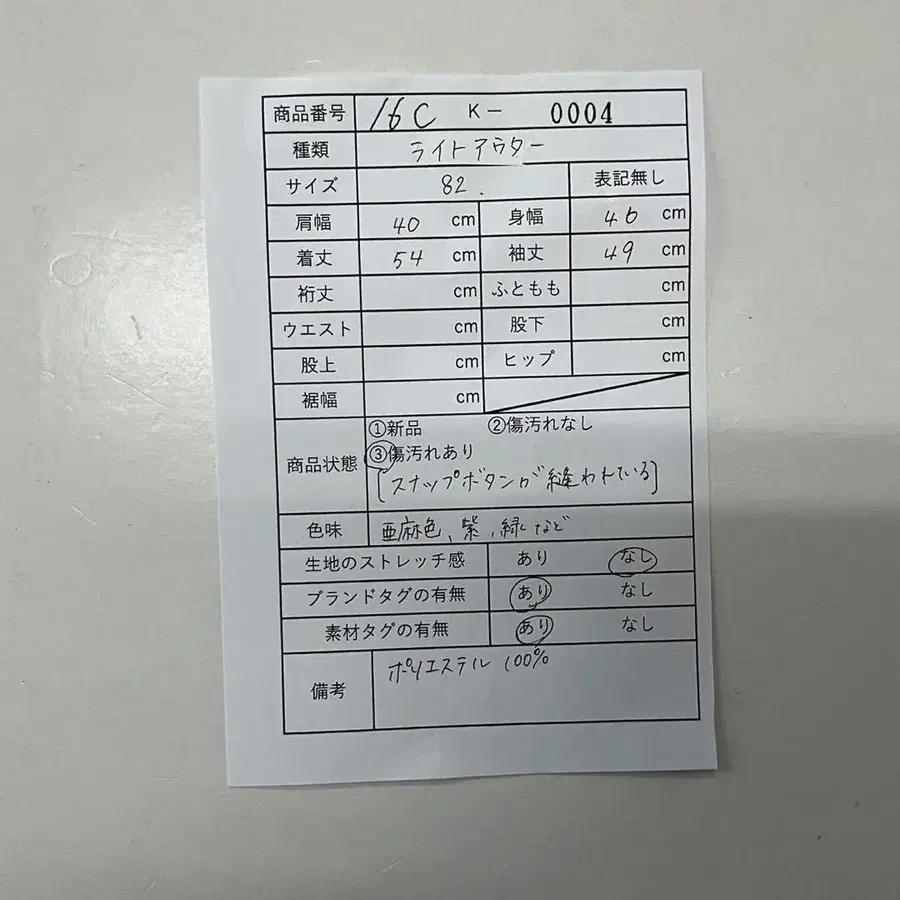 商品番号 16C K- 0004
種類 ライトアウター
サイズ 82. 表記無し
肩幅 40 cm 身幅 46 cm
着丈 54 cm 袖丈 49 cm
裄丈 cm ふともも cm
ウエスト cm 股下 cm
股上 cm ヒップ cm
裾幅 cm
商品状態 ①新品 ②傷汚れなし
③傷汚れあり
[スナップボタンが縫われている]
色味 亜麻色、紫、緑など
生地のストレッチ感 あり なし
ブランドタグの有無 あり なし
素材タグの有無 あり なし
備考 ポリエステル 100%